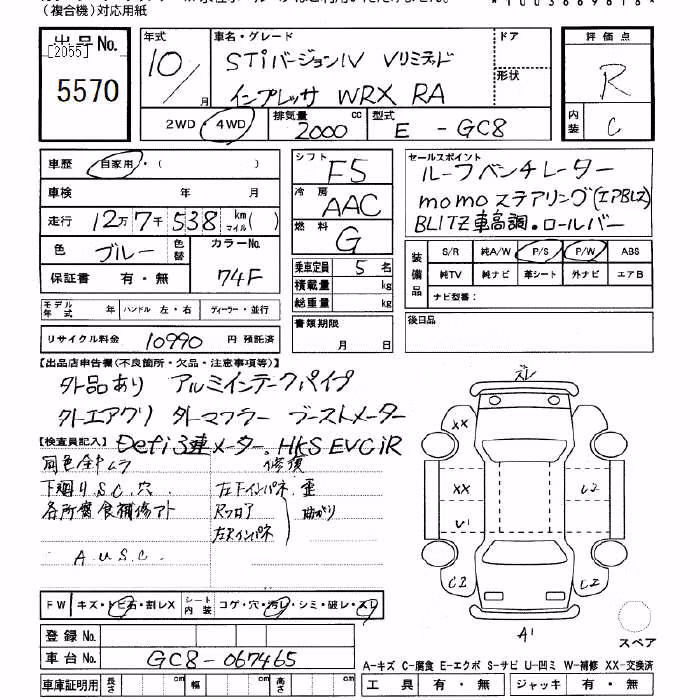 (複合機)対応用紙
出品No.
[2055]
5570
年式
10/
月
車名・グレード
STiバージョンIV Vリミテッド
インプレッサ WRX RA
ドア
形状
評価点
R
内装
C
2WD・4WD
排気量
2000
cc
型式
E - GC8
車歴
自家用・( )
車検 年 月
走行 12万7千538 km マイル( )
色 ブルー
色替
カラーNo.
74F
保証書 有・無
シフト F5
冷房 AAC
燃料 G
乗車定員 5 名
積載量 kg
総重量 kg
セールスポイント
ルーフベンチレーター
momoステアリング(エアBレス)
BLITZ車高調・ロールバー
装備品
S/R 純A/W P/S P/W ABS
純TV 純ナビ 革シート 外ナビ エアB
ナビ型番:
モデル年式 年 ハンドル 左・右 ディーラー・並行
リサイクル料金 10990 円 預託済
書類期限
月 日
後日品
【出品店申告欄(不良箇所・欠品・注意事項等)】
外品あり アルミインテークパイプ
外エアクリ 外マフラー ブーストメーター
【検査員記入】
Defi3連メーター、HKS EVCiR
同色全ムラ
下廻りS.C.穴.
各所腐食補修アト
AUSC.
修復
左下インパネ 歪
Rフロア
左Rインパネ
曲がり
ズレ
XX
XX
V1
C2
C2
C2
A1
スペア
FW キズ・トビ石・割レX
シート内装 コゲ・穴・汚レ・シミ・破レ・スレ
登録No.
車台No. GC8-067465
車庫証明用 長さ cm 幅 cm 高さ cm
A-キズ C-腐食 E-エクボ S-サビ U-凹ミ W-補修 XX-交換済
工具 有・無 ジャッキ 有・無